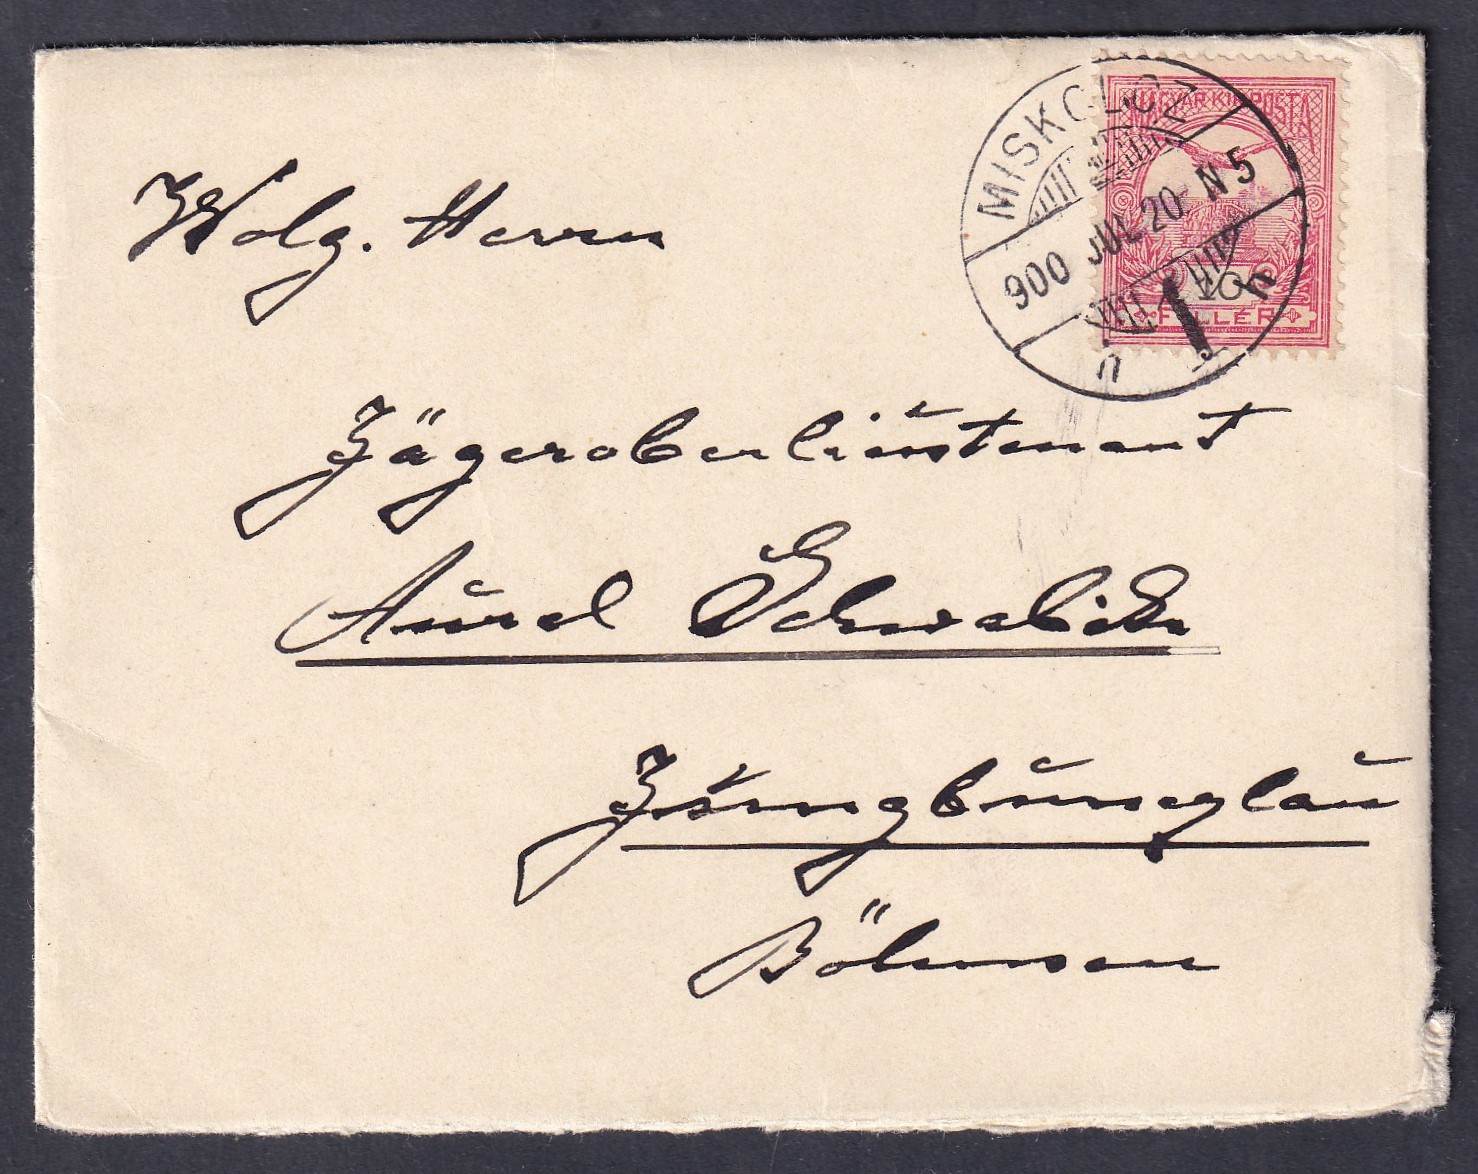 MAGYAR KIR. POSTA
MISKOLCZ
900 JUL 20 N 5
10
FILLÉR
Wolg. Herrn
Jägeroberlieutenant
Aurel Schwabik
Jungbunzlau
Böhmen